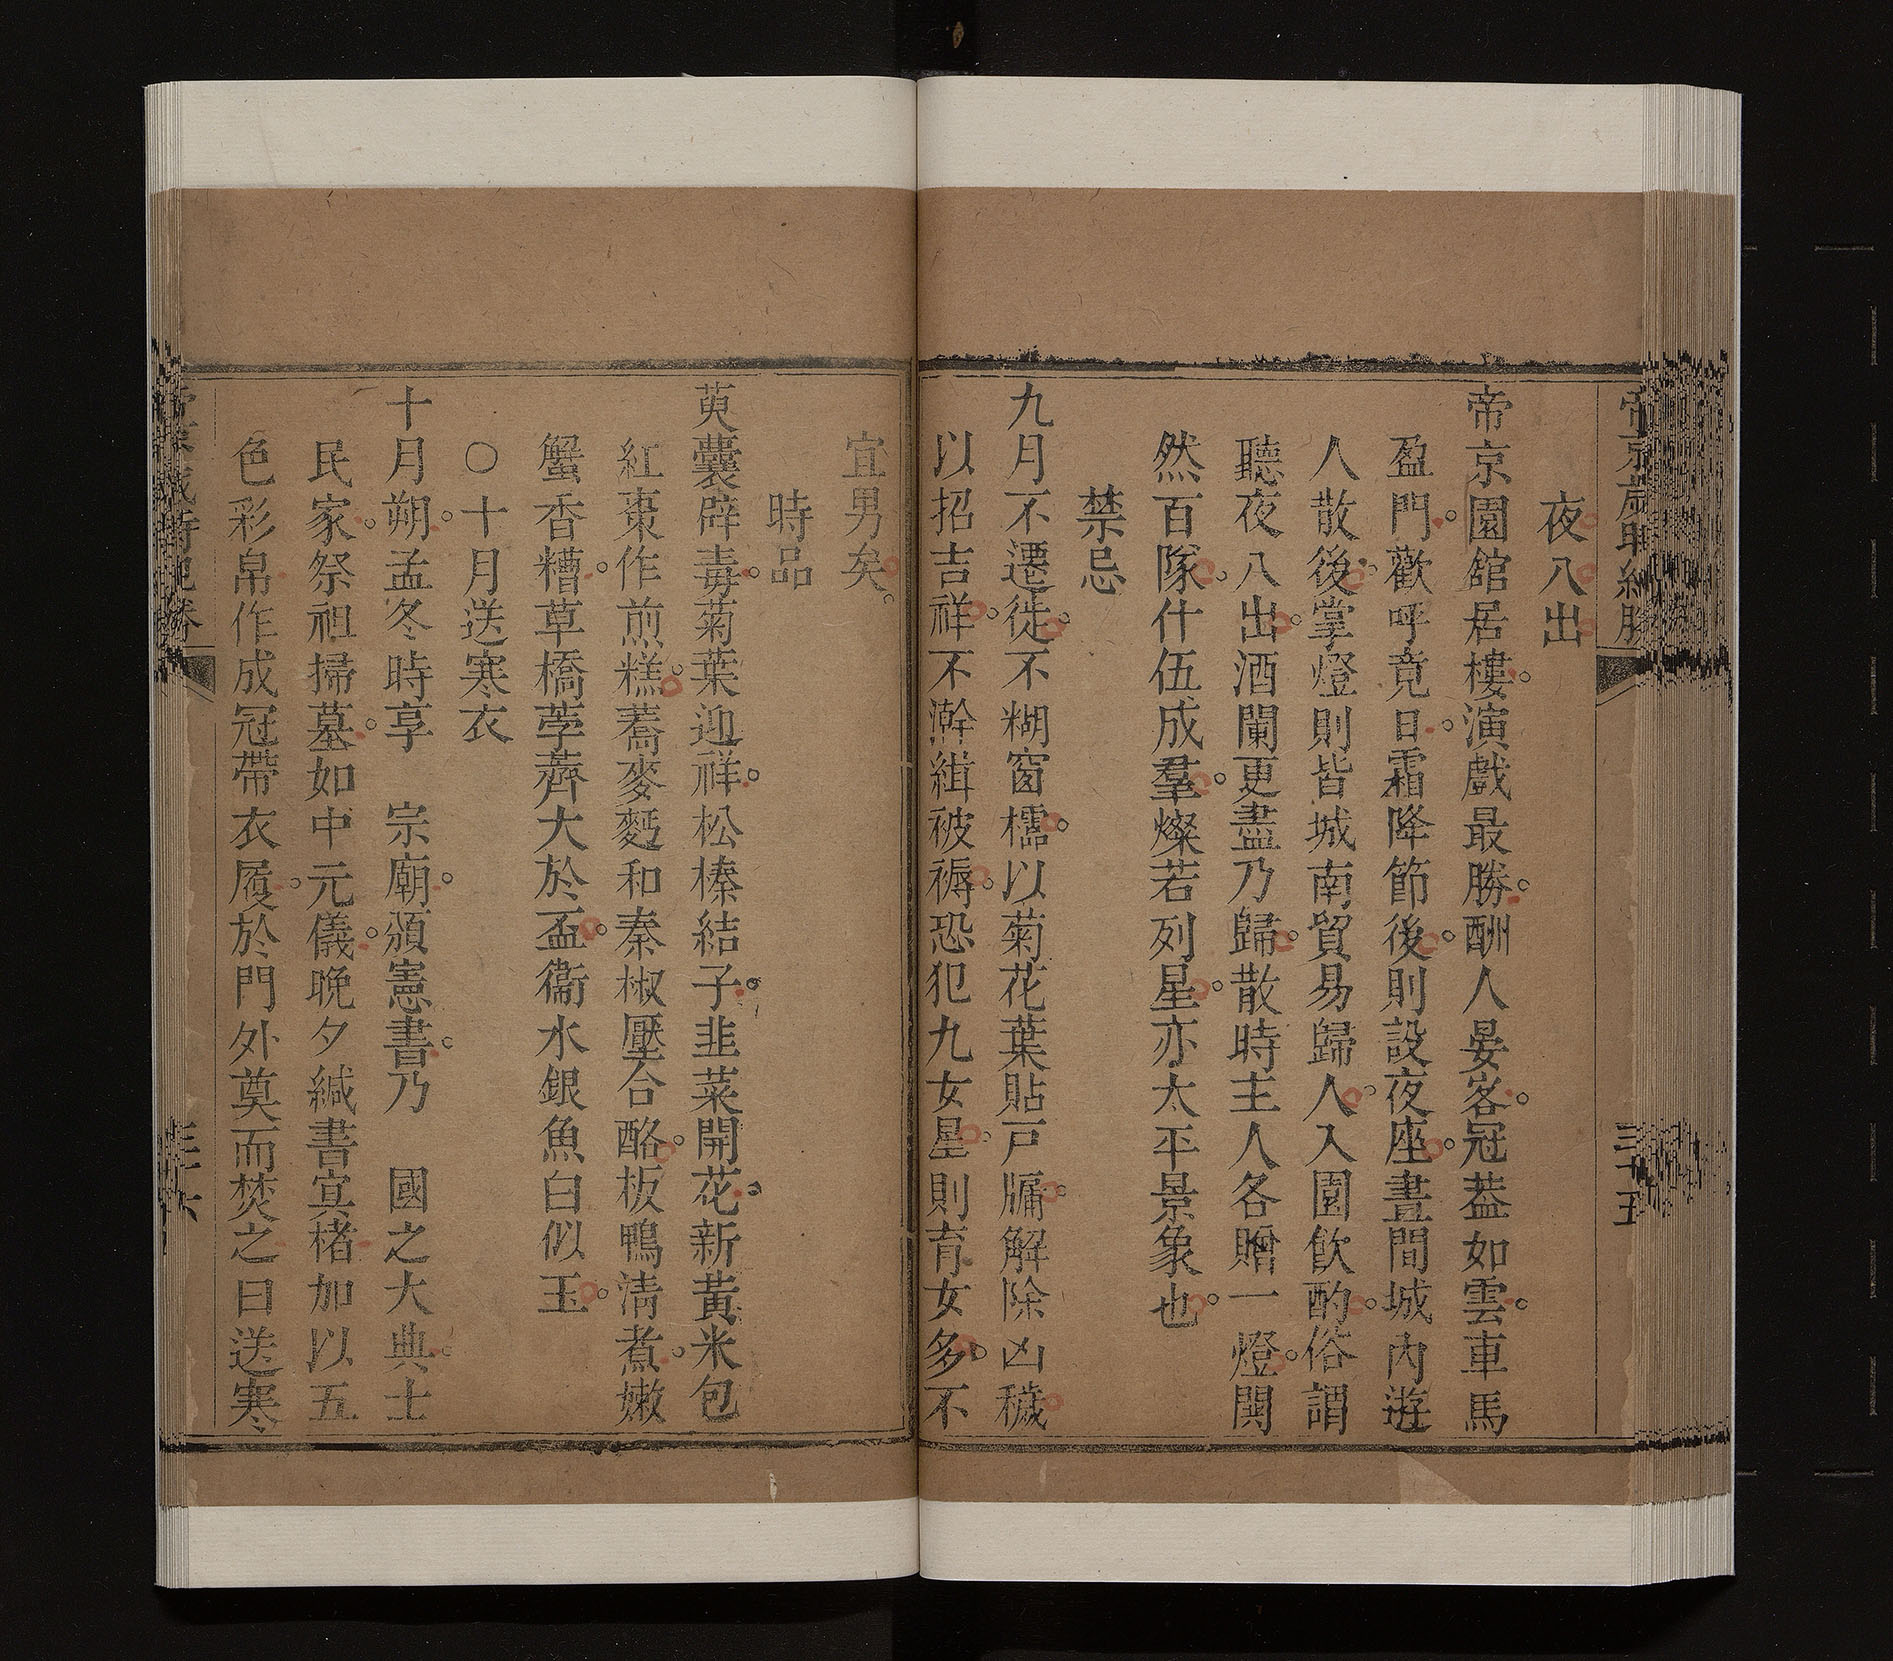 帝京歲時紀勝
三十五
夜八出
帝京園館居樓。演戲最勝。酬人晏客。冠葢如雲。車馬
盈門。歡呼竟日。霜降節後。則設夜座。晝間城內遊
人散後。掌燈則皆城南貿易歸人。入園飲酌。俗謂
聽夜八出。酒闌更盡乃歸。散時主人各贈一燈。閧
然百隊。什伍成羣。燦若列星。亦太平景象也。
禁忌
九月不遷徙。不糊窗檽。以菊花葉貼戸牖。解除凶穢
以招吉祥。不澣緝被褥。恐犯九女星。則育女多。不
宜男矣。
時品
萸囊辟毒。菊葉迎祥。松榛結子。韭菜開花。新黃米包
紅棗作煎糕。蕎麥麪和秦椒壓合酪。板鴨清煮。嫩
蟹香糟。草橋荸薺大於盃。衞水銀魚白似玉。
○十月送寒衣
十月朔。孟冬時享　宗廟。頒憲書。乃　國之大典。士
民家。祭祖掃墓。如中元儀。晚夕緘書寘楮。加以五
色彩帛作成冠帶衣履。於門外奠而焚之曰送寒
帝京歲時紀勝
三十六